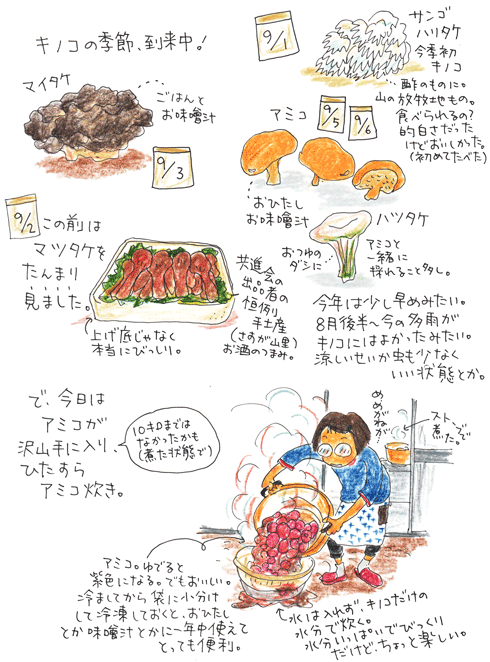 キノコの季節、到来中!
マイタケ
ごはんと
お味噌汁
9/3
9/1
サンゴ
ハリタケ
今季初
キノコ
酢のものに。
山の放牧地もの。
食べられるの?
的白さだった
けどおいしかった。
(初めてたべた)
アミコ
9/5
9/6
おひたし
お味噌汁
9/2
この前は
マツタケを
たんまり
見ました。
上げ底じゃなく
本当にびっしり。
共進会の
出品者の
恒例
手土産
(さすが山里)
お酒のつまみ。
ハツタケ
おつゆの
ダシに
アミコと
一緒に
採れること多し。
今年は少し早めみたい。
8月後半~今の多雨が
キノコにはよかったみたい。
涼しいせいか虫も少なく
いい状態とか。
で、今日は
アミコが
沢山手に入り、
ひたすら
アミコ炊き。
10キロまでは
なかったかも
(煮た状態で)
めめがねが!
ストーブで
煮た
アミコ。ゆでると
紫色になる。でもおいしい。
冷ましてから袋に小分け
して冷凍しておくと、おひたし
とか味噌汁とかに一年中使えて
とっても便利。
水は入れず、キノコだけの
水分で炊く。
水分いっぱいでびっくり
だけど、ちょっと楽しい。